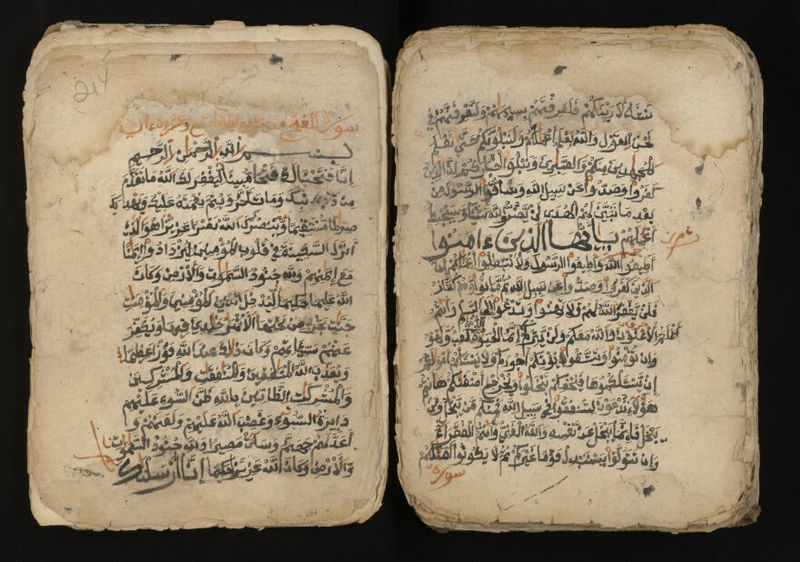 نشاء لأرينكهم فلعرفتهم بسيمهم ولتعرفنهم في
لحن القول والله يعلم أعملكم ولنبلونكم حتى نعلم
المجهدين منكم والصبرين ونبلوا أخباركم إن الذين
كفروا وصدوا عن سبيل الله وشاقوا الرسول من
بعد ما تبين لهم الهدى لن يضروا الله شيئا وسيحبط
أعملهم يأيها الذين ءامنوا
أطيعوا الله وأطيعوا الرسول ولا تبطلوا أعملكم إن
الذين كفروا وصدوا عن سبيل الله ثم ماتوا وهم كفار
فلن يغفر الله لهم فلا تهنوا وتدعوا إلى السلم وأنتم
الأعلون والله معكم ولن يتركم أعملكم إنما الحيوة الدنيا لعب ولهو
وإن تؤمنوا وتتقوا يؤتكم أجوركم ولا يسئلكم أمولكم
إن يسئلكموها فيحفكم تبخلوا ويخرج أضغنكم هانتم
هؤلاء تدعون لتنفقوا في سبيل الله فمنكم من يبخل ومن
يبخل فإنما يبخل عن نفسه والله الغني وأنتم الفقراء
وإن تتولوا يستبدل قوما غيركم ثم لا يكونوا أمثلكم
سورة
سورة الفتح وعشرون ءاية
بسم الله الرحمن الرحيم
إنا فتحنا لك فتحا مبينا ليغفر لك الله ما تقدم
من ذنبك وما تأخر ويتم نعمته عليك ويهديك
صرطا مستقيما وينصرك الله نصرا عزيزا هو الذي
أنزل السكينة في قلوب المؤمنين ليزدادوا إيمنا
مع إيمنهم ولله جنود السموت والأرض وكان
الله عليما حكيما ليدخل المؤمنين والمؤمنت
جنت تجري من تحتها الأنهر خلدين فيها ويكفر
عنهم سيئاتهم وكان ذلك عند الله فوزا عظيما
ويعذب المنفقين والمنفقت والمشركين
والمشركت الظانين بالله ظن السوء عليهم
دائرة السوء وغضب الله عليهم ولعنهم و
أعد لهم جهنم وساءت مصيرا ولله جنود السموت
والأرض وكان الله عزيزا حكيما إنا أرسلنك